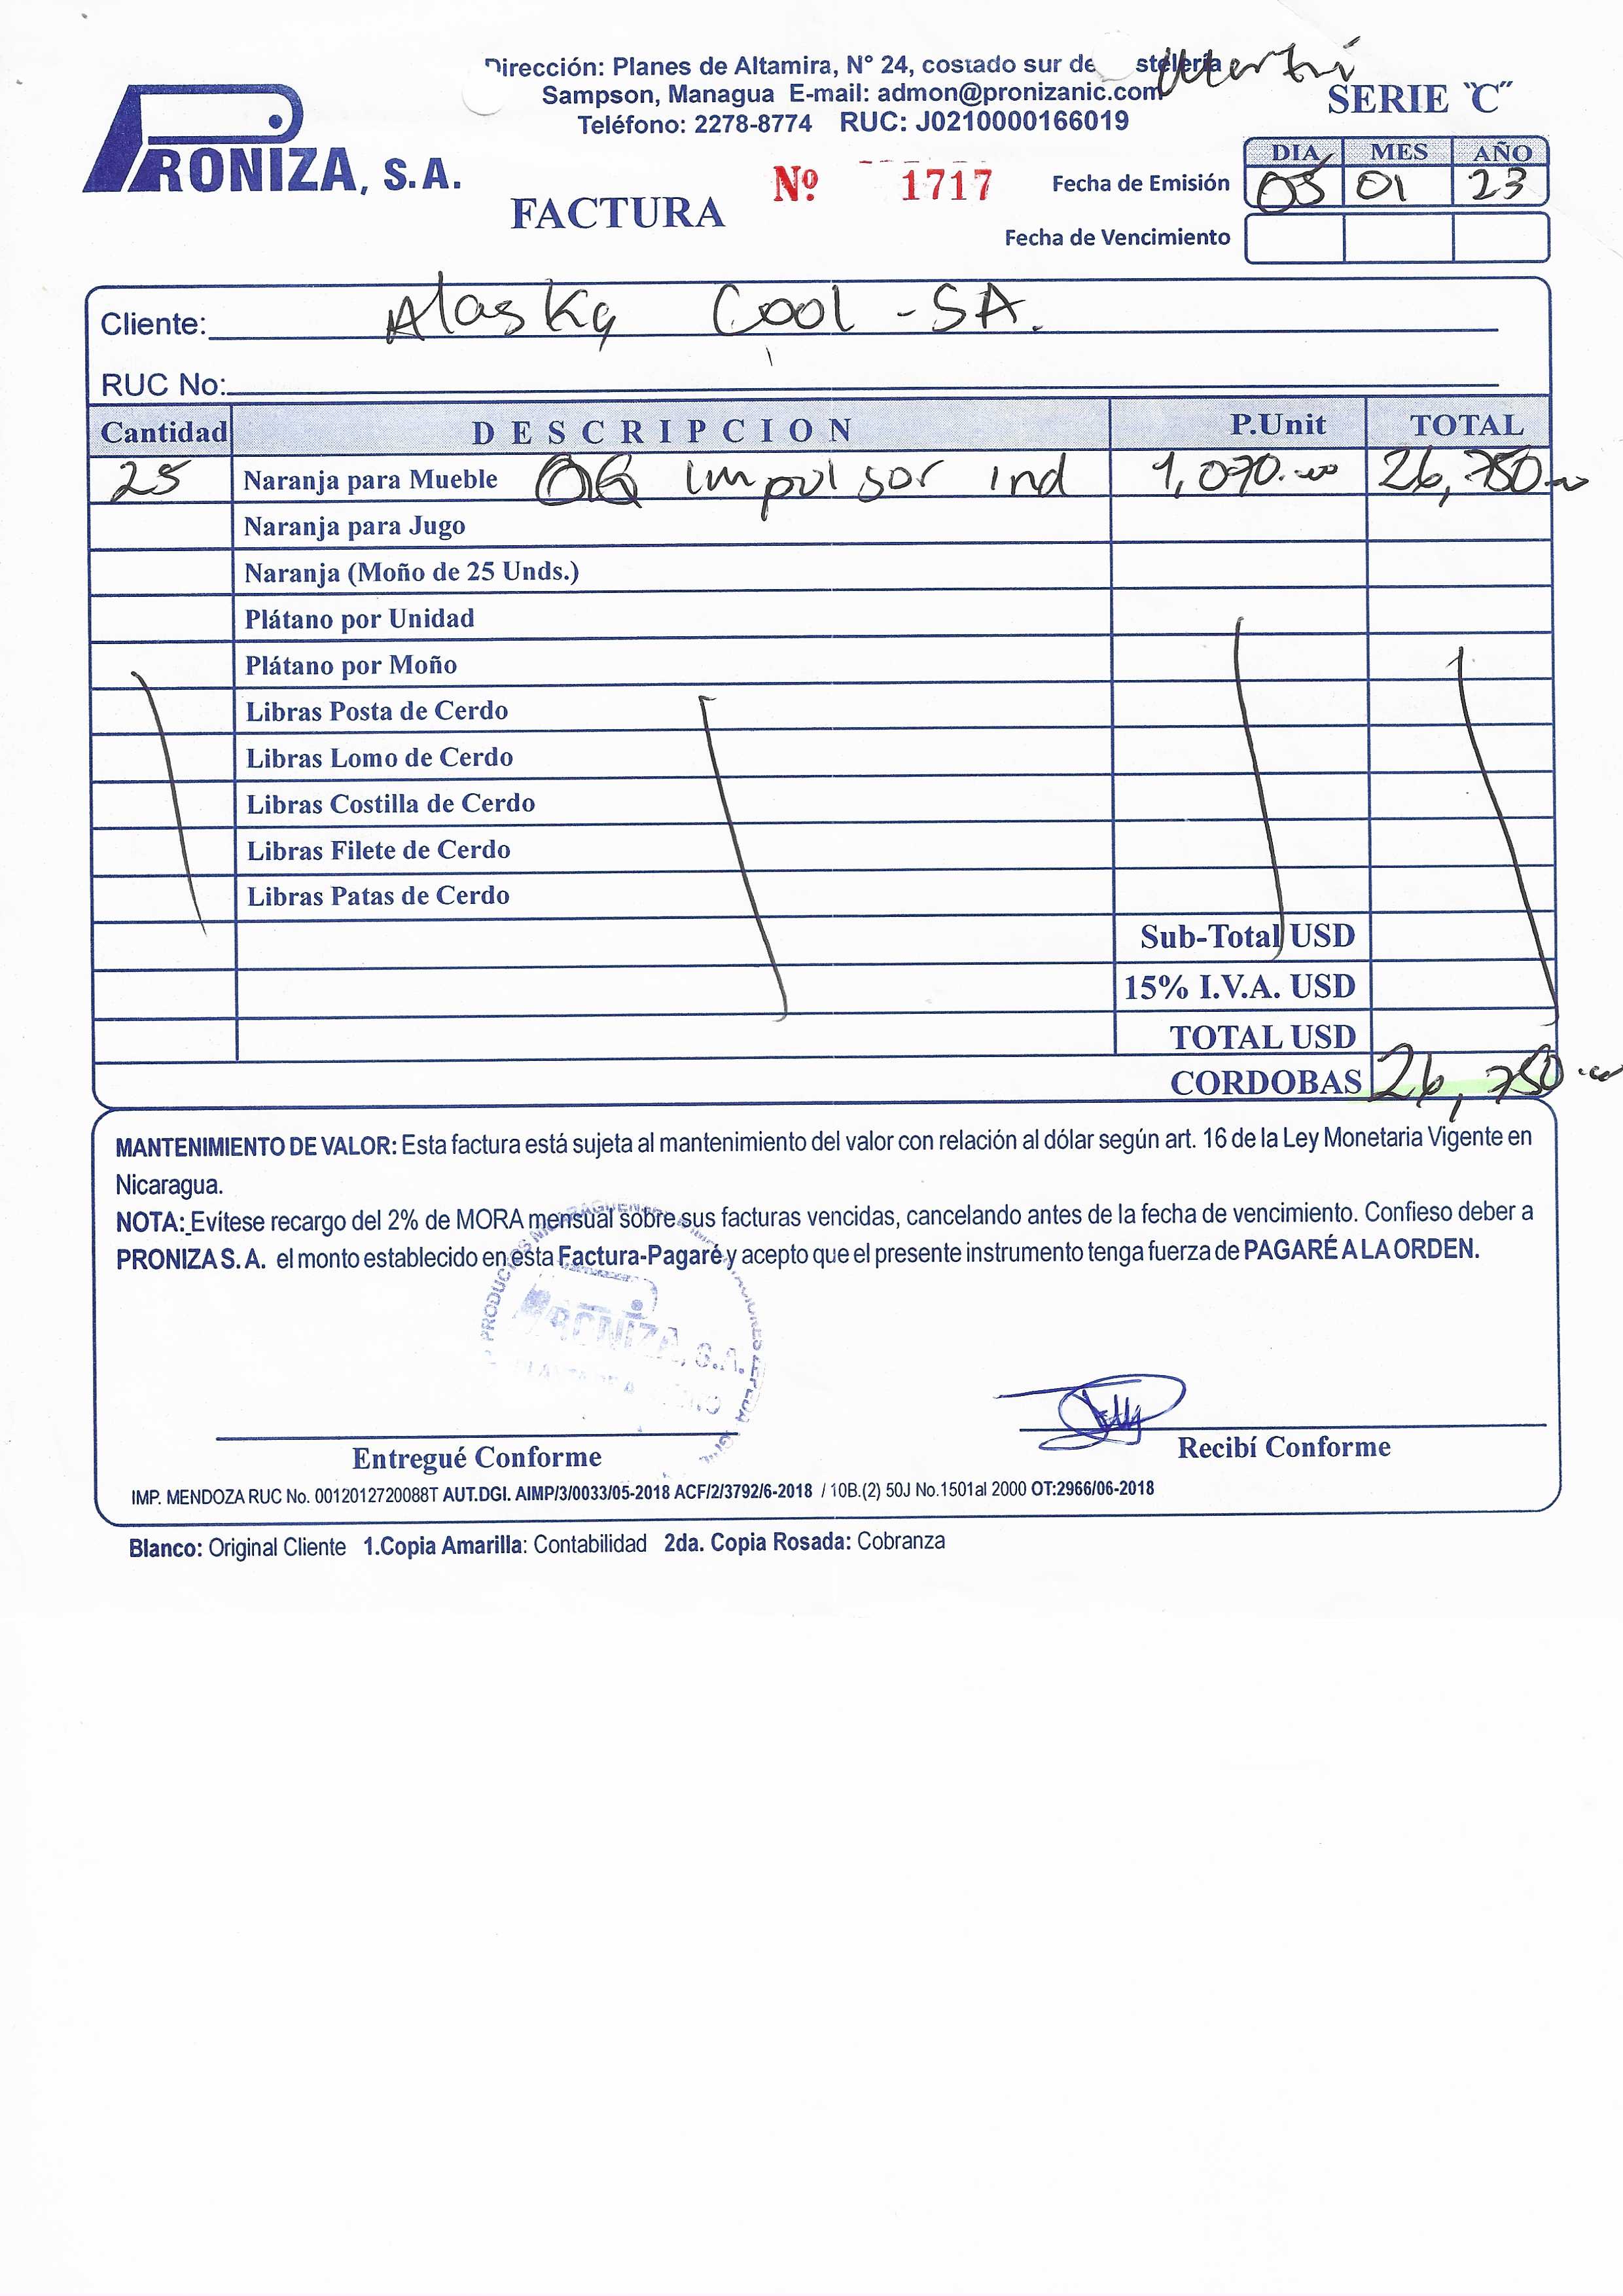 Dirección: Planes de Altamira, N° 24, costado sur de stelería
Sampson, Managua E-mail: admon@pronizanic.com
SERIE "C"
Teléfono: 2278-8774 RUC: J0210000166019
PRONIZA, S.A.
FACTURA
Nº 1717
DIA MES AÑO
Fecha de Emisión 05 01 23
Fecha de Vencimiento
Cliente: Alaska Cool - SA.
RUC No:
Cantidad DESCRIPCION P.Unit TOTAL
25 Naranja para Mueble impulsor ind 1,070.00 26,750.00
Naranja para Jugo
Naranja (Moño de 25 Unds.)
Plátano por Unidad
Plátano por Moño
Libras Posta de Cerdo
Libras Lomo de Cerdo
Libras Costilla de Cerdo
Libras Filete de Cerdo
Libras Patas de Cerdo
Sub-Total USD
15% I.V.A. USD
TOTAL USD
CORDOBAS 26,750.00
MANTENIMIENTO DE VALOR: Esta factura está sujeta al mantenimiento del valor con relación al dólar según art. 16 de la Ley Monetaria Vigente en
Nicaragua.
NOTA: Evítese recargo del 2% de MORA mensual sobre sus facturas vencidas, cancelando antes de la fecha de vencimiento. Confieso deber a
PRONIZA S. A. el monto establecido en esta Factura-Pagaré y acepto que el presente instrumento tenga fuerza de PAGARÉ A LA ORDEN.
PRONIZA, S.A.
Entregué Conforme
Recibí Conforme
IMP. MENDOZA RUC No. 0012012720088T AUT.DGI. AIMP/3/0033/05-2018 ACF/2/3792/6-2018 / 10B.(2) 50J No.1501al 2000 OT:2966/06-2018
Blanco: Original Cliente 1.Copia Amarilla: Contabilidad 2da. Copia Rosada: Cobranza